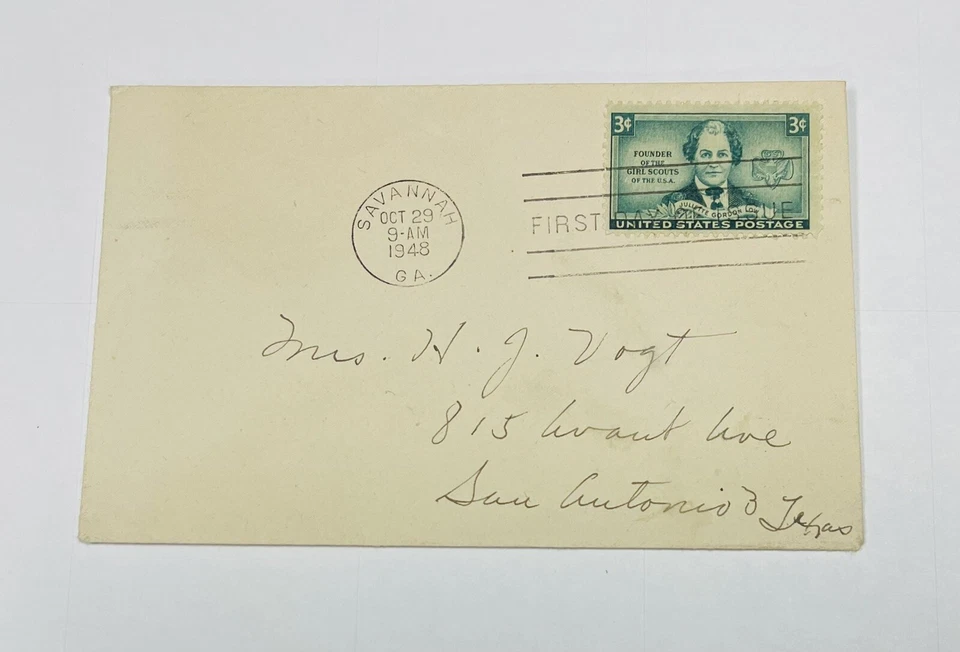 3¢ 3¢
FOUNDER
OF THE
GIRL SCOUTS
OF THE U.S.A.
JULIETTE GORDON LOW
UNITED STATES POSTAGE
FIRST DAY OF ISSUE
SAVANNAH
OCT 29
9-AM
1948
GA.
Mrs. H. J. Vogt
815 Avant Ave
San Antonio 3 Texas